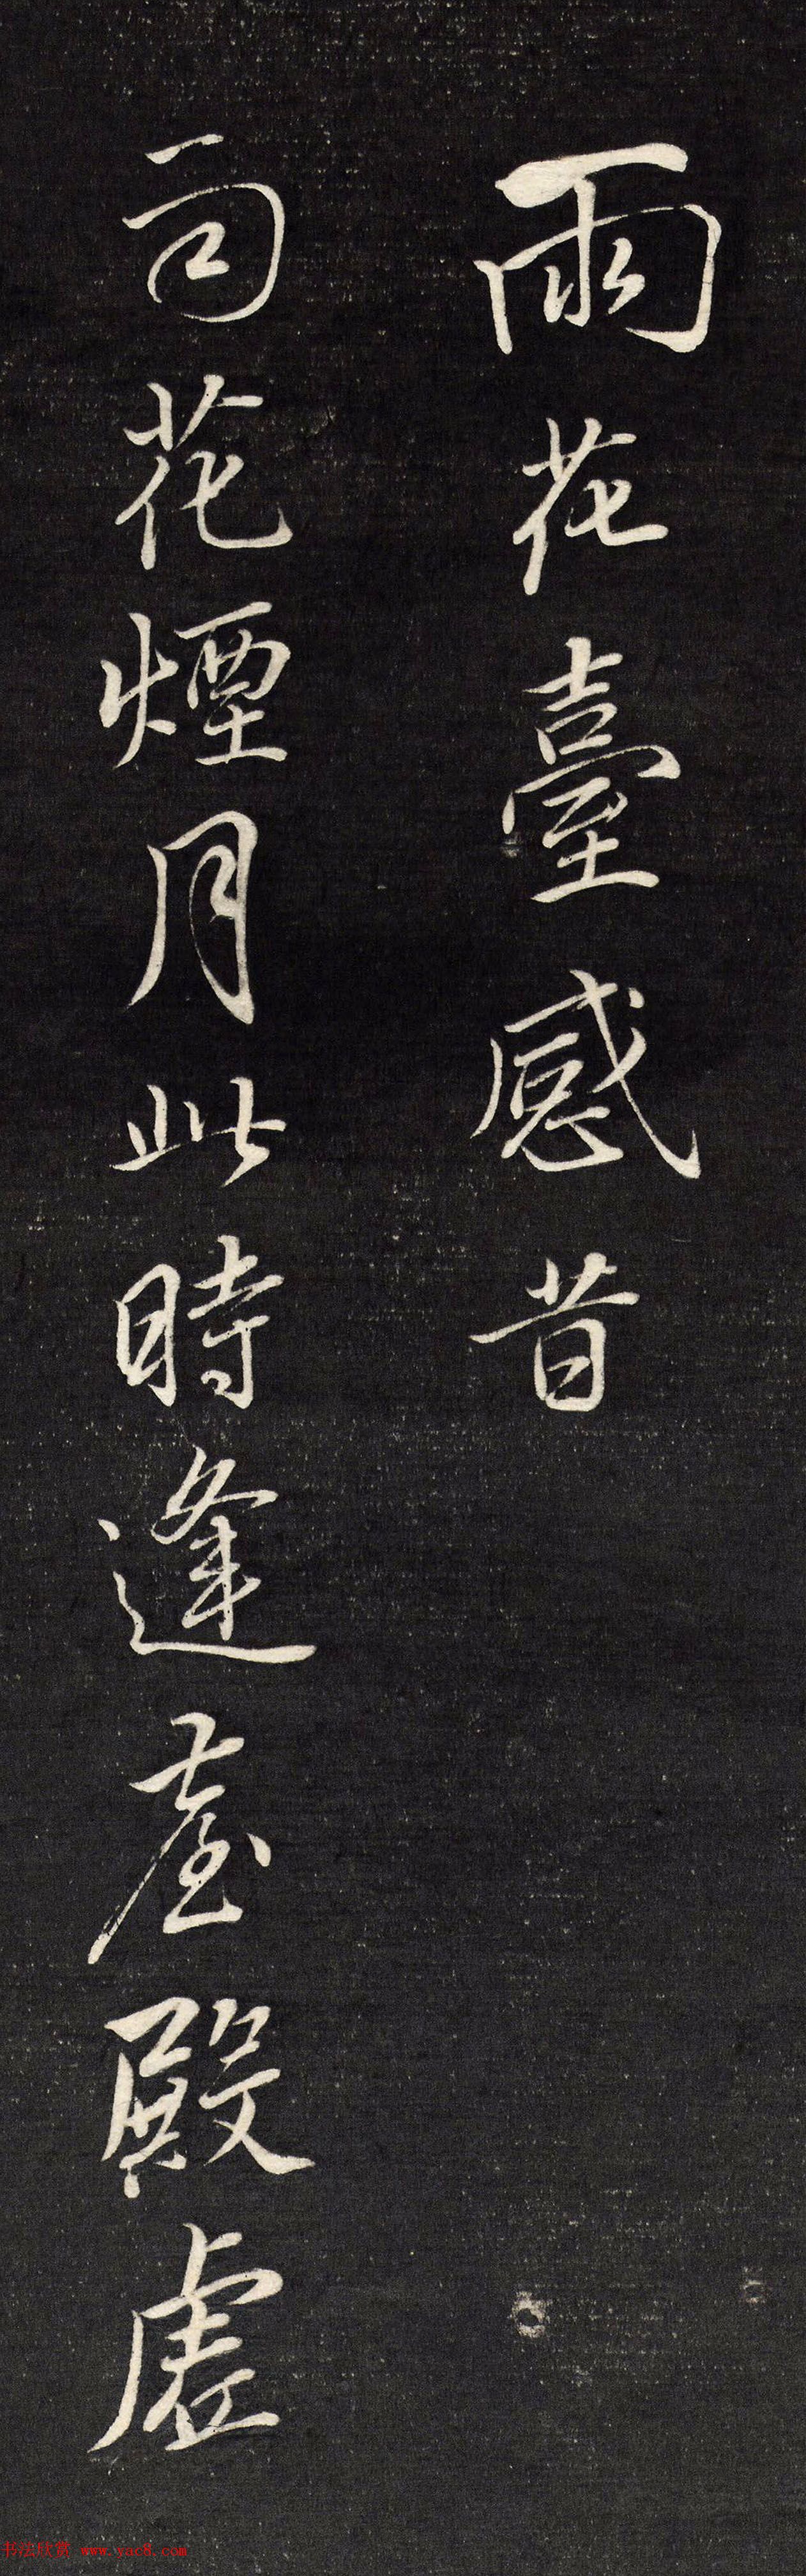 雨花臺感昔
司花煙月此時逢臺殿虛
书法欣赏 www.yac8.com